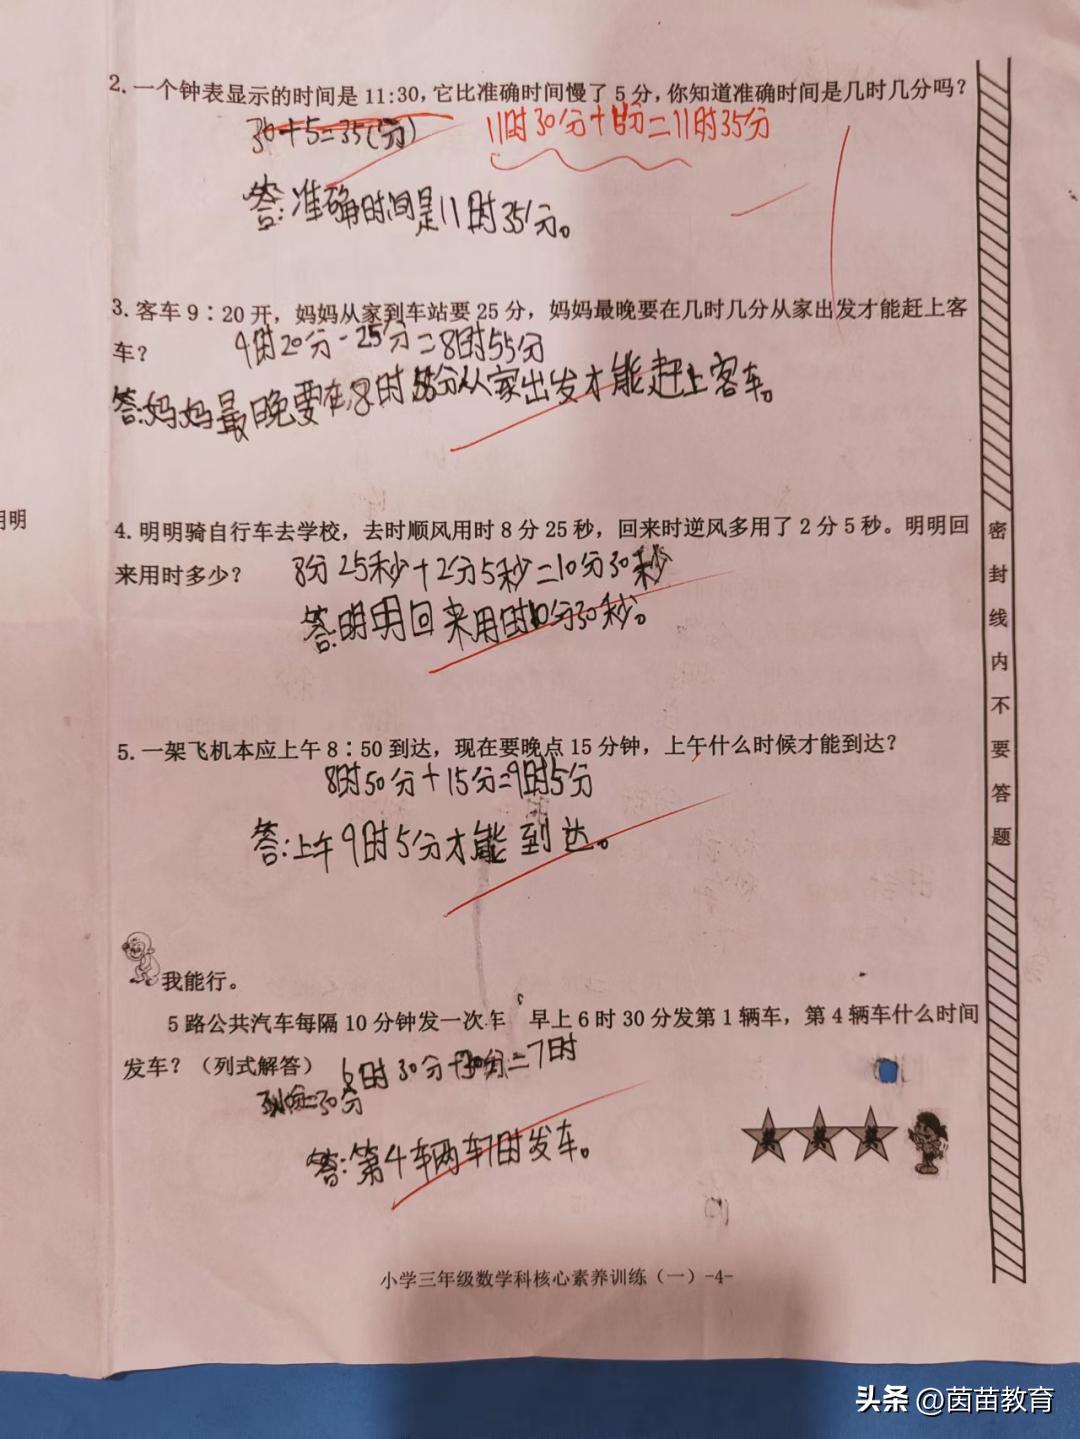 2. 一个钟表显示的时间是 11:30, 它比准确时间慢了 5 分, 你知道准确时间是几时几分吗?
30+5=35(分)
11时30分+5分=11时35分
答:准确时间是11时35分。
3. 客车 9:20 开, 妈妈从家到车站要 25 分, 妈妈最晚要在几时几分从家出发才能赶上客
车?
9时20分-25分=8时55分
答:妈妈最晚要在8时55分从家出发才能赶上客车。
明明
4. 明明骑自行车去学校, 去时顺风用时 8 分 25 秒, 回来时逆风多用了 2 分 5 秒。明明回
来用时多少?
8分25秒+2分5秒=10分30秒
答:明明回来用时10分30秒。
5. 一架飞机本应上午 8:50 到达, 现在要晚点 15 分钟, 上午什么时候才能到达?
8时50分+15分=9时5分
答:上午9时5分才能到达。
我能行。
5 路公共汽车每隔 10 分钟发一次车。早上 6 时 30 分发第 1 辆车, 第 4 辆车什么时间
发车? (列式解答)
6时30分+30分=7时
=30分
答:第4车两车7时发车。
奖 奖 奖
小学三年级数学科核心素养训练(一)-4-
密封线内不要答题
头条 @茵苗教育